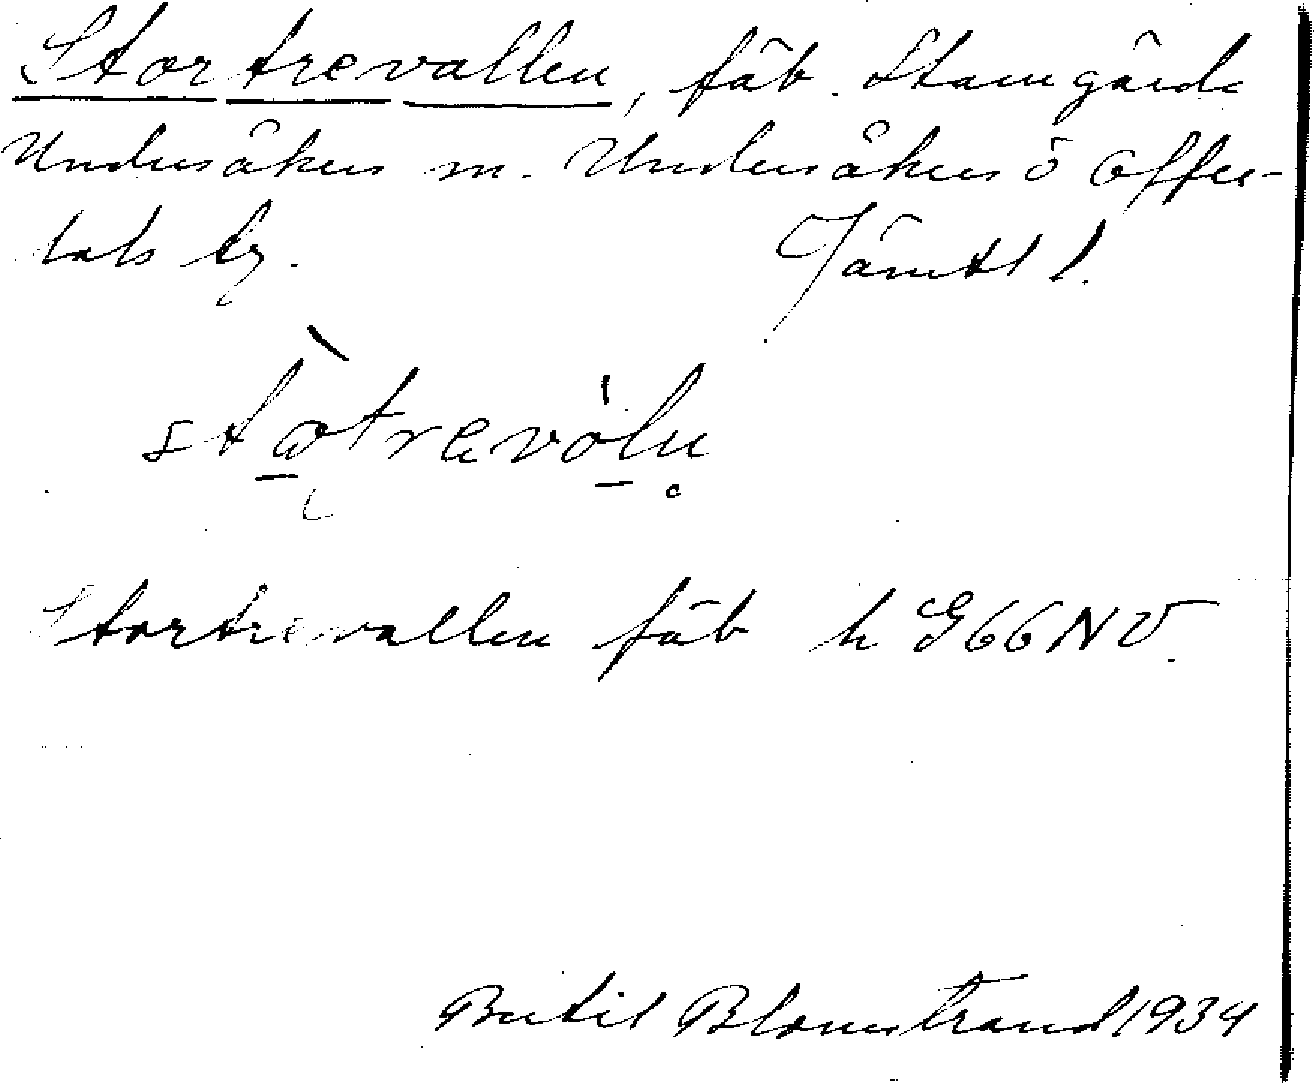 Stortrevallen, fäb. Stamgärde
Undersåkers sn. Undersåkers o Offer-
dals tg. Jämtl l.
Stortrevallen fäb h G66NV.
Bertil Blomstrand 1934